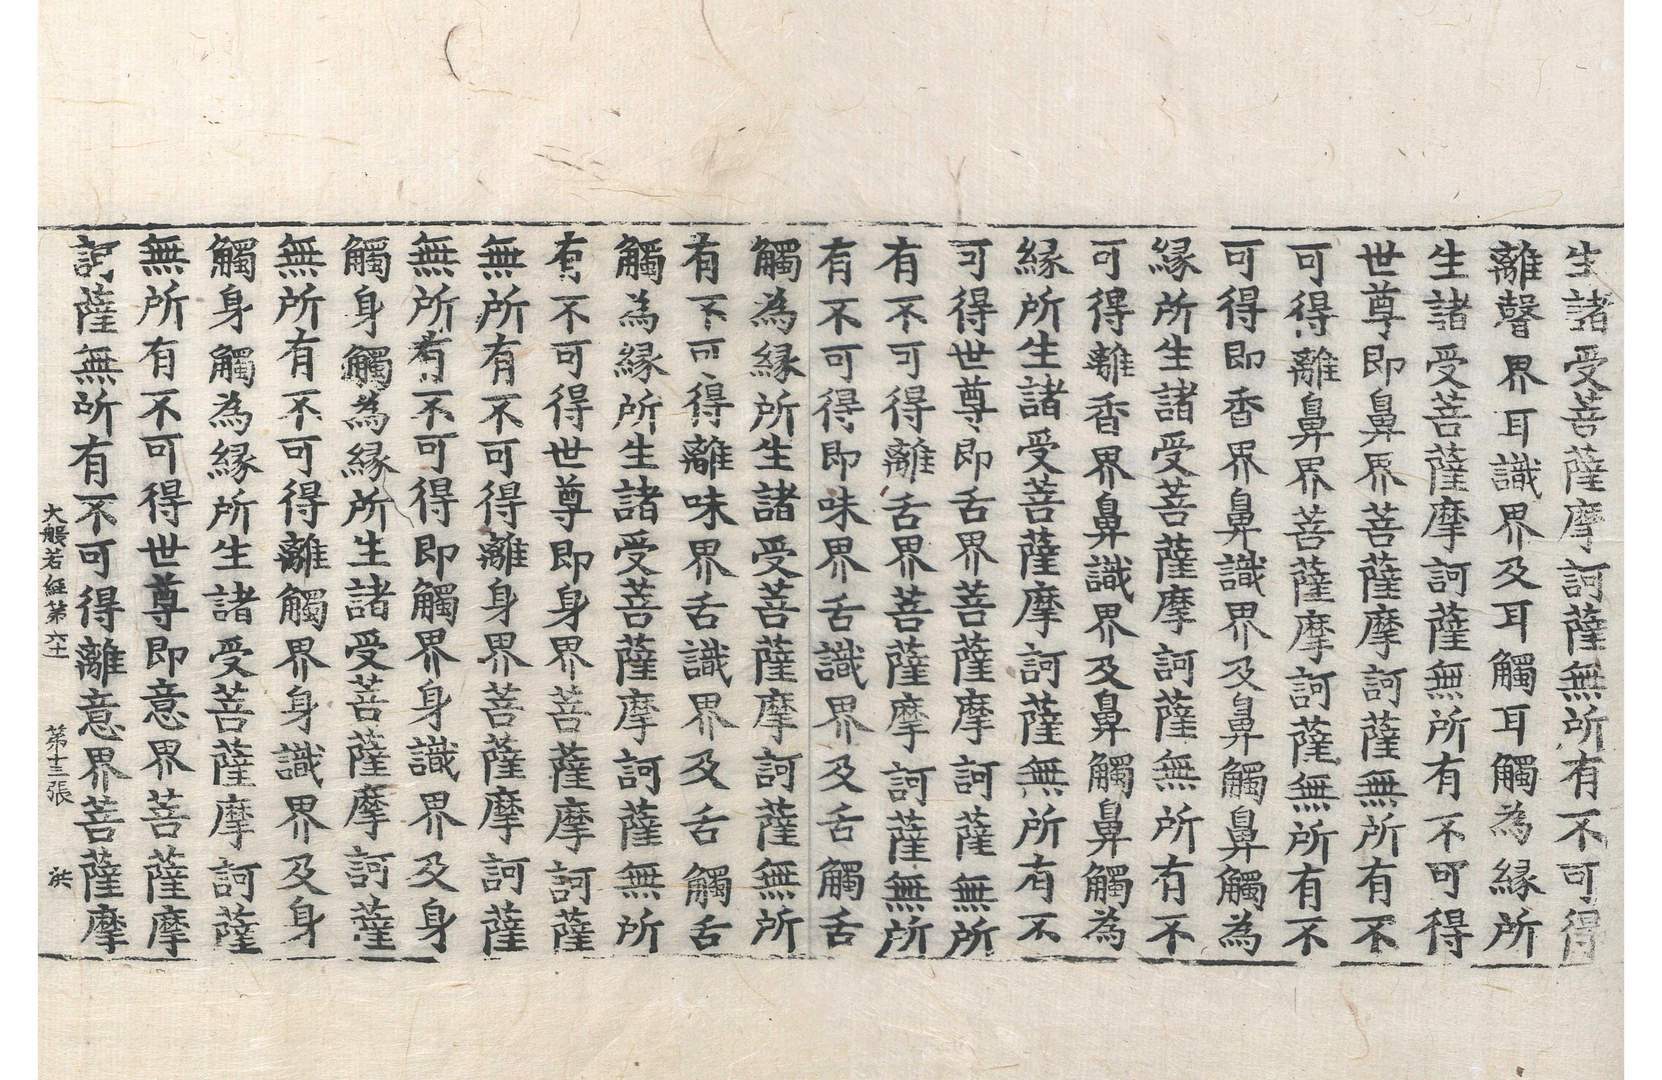 生諸受菩薩摩訶薩無所有不可得
離聲界耳識界及耳觸耳觸為縁所
生諸受菩薩摩訶薩無所有不可得
世尊即鼻界菩薩摩訶薩無所有不
可得離鼻界菩薩摩訶薩無所有不
可得即香界鼻識界及鼻觸鼻觸為
縁所生諸受菩薩摩訶薩無所有不
可得離香界鼻識界及鼻觸鼻觸為
縁所生諸受菩薩摩訶薩無所有不
可得世尊即舌界菩薩摩訶薩無所
有不可得離舌界菩薩摩訶薩無所
有不可得即味界舌識界及舌觸舌
觸為縁所生諸受菩薩摩訶薩無所
有不可得離味界舌識界及舌觸舌
觸為縁所生諸受菩薩摩訶薩無所
有不可得世尊即身界菩薩摩訶薩
無所有不可得離身界菩薩摩訶薩
無所有不可得即觸界身識界及身
觸身觸為縁所生諸受菩薩摩訶薩
無所有不可得離觸界身識界及身
觸身觸為縁所生諸受菩薩摩訶薩
無所有不可得世尊即意界菩薩摩
訶薩無所有不可得離意界菩薩摩
大般若經第六十一 第十三張